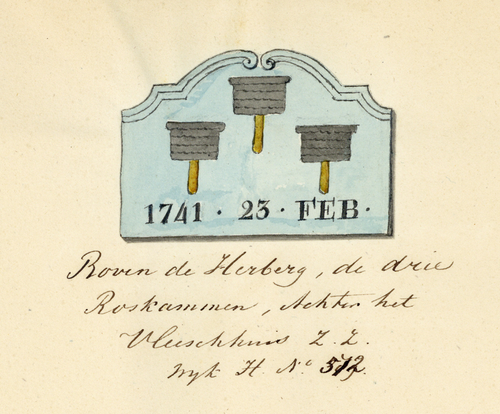 1741 · 23 · FEB ·
Boven de Herberg, de drie
Roskammen, Achter het
Vleeschhuis Z. Z.
Wyk H N.o